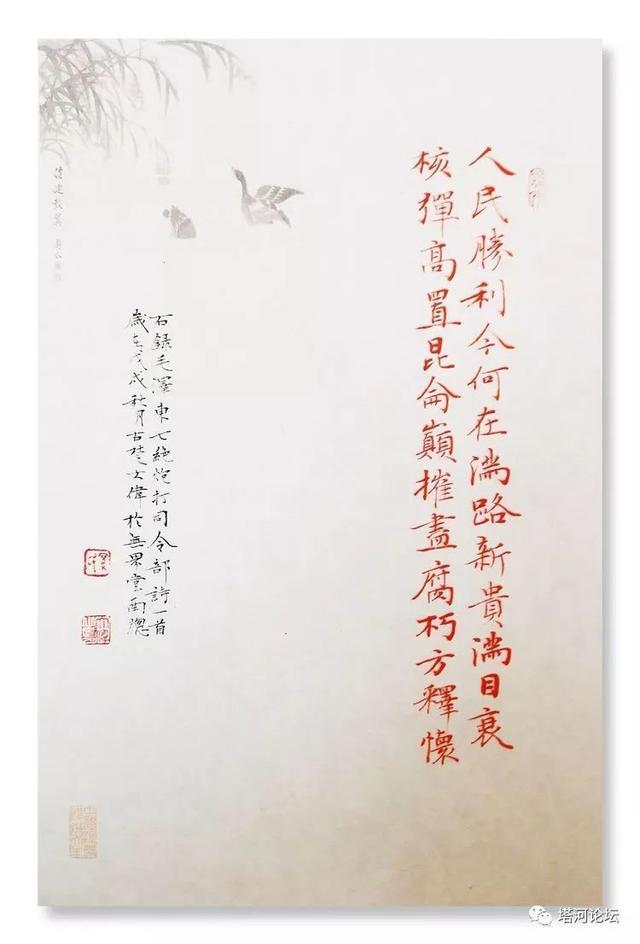 人民勝利今何在滿路新貴滿目衰
核彈高置昆侖巔摧盡腐朽方釋懷
右錄毛澤東七絕炮打司令部詩一首
歲在戊戌秋月古楚士偉於無堂南
塔河论坛